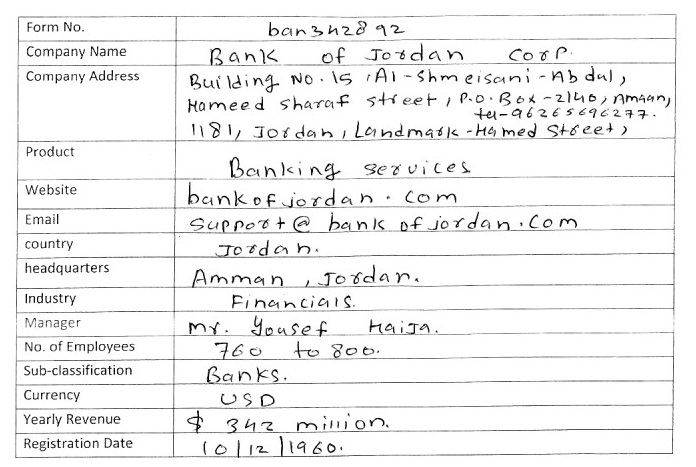 Form No. ban342892
Company Name Bank of Jordan Corp.
Company Address Building No. 15, Al-Shmeisani-Abdul,
Hameed Sharaf street, P.O. Box-2140, Amaan,
tel-96265696277.
1181, Jordan, Landmark-Hamed Street,
Product Banking services
Website bankofjordan.com
Email Support@bankofjordan.com
country Jordan.
headquarters Amman, Jordan.
Industry Financials.
Manager Mr. Yousef Haija.
No. of Employees 760 to 800.
Sub-classification Banks.
Currency USD
Yearly Revenue $ 342 million.
Registration Date 10/12/1960.